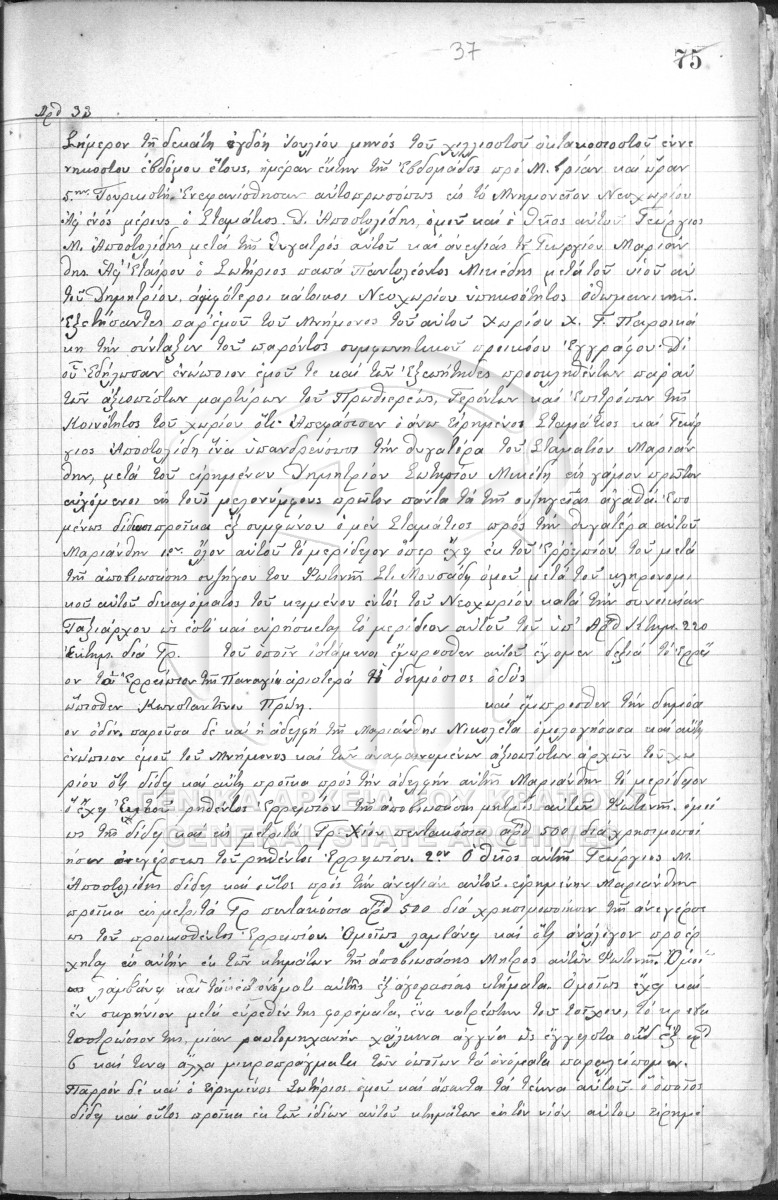 37
75
Αρθ 33
Σήμερον τῇ δεκάτῃ ὀγδόῃ Ἰουλίου μηνὸς τοῦ χιλλιοστοῦ ὀκτακοσιοστοῦ ἐννε
νηκοστοῦ ἑβδόμου ἔτους, ἡμέραν ἕκτην τῆς Ἑβδομάδος πρὸ Μ.βρίαν καὶ ὥραν
5ην Τουρκιστὶ, Ἐνεφανίσθησαν αὐτοπροσώπως εἰς τὸ Μνημονεῖον Νεοχωρίου
Ἀφ ἑνὸς μέρους ὁ Σταμάτιος Δ. Ἀποστολίδης, ὁμοῦ καὶ ὁ θεῖος αὐτοῦ Γεώργιος
Μ. Ἀποστολίδης μετὰ τῆς θυγατρὸς αὐτοῦ καὶ ἀνεψιᾶς τῦ Γεωργίου Μαριάν
θης. Ἀφ Ἑταίρου ὁ Σωτήριος παπᾶ Παντολέοντος Μικέδης μετὰ τοῦ υἱοῦ αὐ
τοῦ Δημητρίου, ἀμφότεροι κάτοικοι Νεοχωρίου ὑπηκοότητος ὀθωμανικῆς.
Ἐξετήσαντες παρ' ἐμοῦ τοῦ Μνήμονος τοῦ αὐτοῦ χωρίου Χ. Γ. Παροικά
κη τὴν σύνταξιν τοῦ παρόντος συμφωνητικοῦ προικώου Ἐγγράφου. Δἰ
οὗ Ἐδήλωσαν ἐνώπιον ἐμοῦ τε καὶ τῶν Ἐξεπίτηδες προσκληθέντων παρ αὐ
τῶν ἀξιοπίστων μαρτύρων τοῦ Πρωθιερέως, Γερόντων καὶ Ἐπιτρόπων τῆς
Κοινότητος τοῦ χωρίου ὅτι Ἀπεφάσισεν ὁ ἄνω εἰρημένος Σταμάτιος καὶ Γεώρ
γιος Ἀποστολίδη ἵνα ὑπανδρεύσωσι τὴν θυγατέρα τοῦ Σταματίου Μαριάν
θην, μετὰ τοῦ εἰρημένου Δημητρίου Σωτηρίου Μικέδη εἰς γάμον πρῶτον
εὐχόμενοι εἰς τοὺς μελονύμφους πρῶτον πάντα τὰ τῆς συζυγείας ἀγαθά. Ἑπο
μένως δίδωσι προῖκα ἐξ συμφώνου ὁ μὲν Σταμάτιος πρὸς τὴν θυγατέρα αὐτοῦ
Μαριάνθην 1ον ὅλον αὐτοῦ τὸ μερίδιον ὅπερ ἔχῃ ἐκ τοῦ Ἐρρειπίου τοῦ μετὰ
τῆς ἀποβιωσάσης συζύγου του Φωτινῆς Στ. Μουσάδη, ὁμοῦ μετὰ τοῦ κληρονομι
κοῦ αὐτοῦ δικαιόματος τοῦ κειμένου ἐντὸς τοῦ Νεοχωρίου κατὰ τὴν συνοικίαν
Ταξιάρχου ὡς ἐστὶ καὶ εὑρίσκεται τὸ μερίδιον αὐτοῦ τοῦ ὑπ' Ἀρθ κτημ. 220
ἐκτημ. διὰ Γρ. τοῦ ὁποῖου ἱστάμενοι ἔμπροσθεν αὐτοῦ ἔχομεν δεξιὰ τὸ Ἐρρεί
ον τὸ Ἐρρειπιον τῆς Παναγία ἀριστερὰ ἡ δημόσιος ὁδὸς
ὤπισθεν Κωνσταντίνου Πρώη. καὶ ἔμπροσθεν τὴν δημόσι
ον ὁδόν. παροῦσα δὲ καὶ ἡ ἀδελφὴ τῆς Μαριάνθης Νικολέτα ὁμολογήσασα καὶ αὐτὴ
ἐνώπιον ἐμοῦ τοῦ Μνήμονος καὶ τῶν ἀναφαινομένων ἀξιοπίστων ἀρχῶν τοῦ χω
ρίου ὅτι δίδει καὶ αὐτὴ προῖκα πρὸς τὴν ἀδελφὴν αὐτῆς Μαριάνθην τὸ μερίδιον
ὃ ἔχῃ Ἐκ τοῦ ρηθέντος Ἐρρειπίου τῆς ἀποβιωσάσης μητρὸς αὐτῶν Φωτινῆς. ὁμοί
ως τῆς δίδει καὶ εἰς μετρητὰ Γρ. Χίου πεντακόσια ἀρθ 500, διὰ χρησιμοποί
ησιν ἀνεγέρσεως τοῦ ρηθέντος Ἐρρειπίου. 2ον Ὁ θεῖος αὐτῆς Γεώργιος Μ.
Ἀποστολίδης δίδει καὶ οὗτος πρὸς τὴν ἀνεψιὰν αὐτοῦ εἰρημένην Μαριάνθην
προῖκα εἰς μετρητὰ Γρ πεντακόσια ἀρθ 500 διὰ χρησιμοποίησιν τῆς ἀνεγέρσε
ως τοῦ προικοσθέντος Ἐρρειπίου. Ὁμοίως λαμβάνει καὶ ὅτι ἀνάλογον προέρ
χηται εἰς αὐτὴν ἐκ τῶν κτημάτων τῆς ἀποβιωσάσης Μητρὸς αὐτῶν Φωτινῆς. Ὁμοί
ως λαμβάνει καὶ τὰ ἐπ' ὀνόματι αὐτῆς ἐξ ἀγορασίας κτήματα. Ὁμοίως ἔχει καὶ
ἓν σκρήνιον μετὰ εὑρεθέν τῆς φορέματα, ἕνα κατρέπτην τοῦ τοίχου, τὸ κρεβα
τοστρώσιον της, μίαν ραυτομηχανήν χάλκινα ἀγγεῖα ὡς ἔγγιστα ὀκάδ ἓξ ἀρθ
6 καὶ τινα ἄλλα μικροπράγματα τῶν ὁποίων τὰ ὀνόματα παραλείπομεν.
Παρρὸν δὲ καὶ ὁ εἰρημένος Σωτήριος ὁμοῦ καὶ ἅπαντα τὰ τέκνα αὐτοῦ. ὁ ὁποῖος
δίδει καὶ οὗτος προῖκα ἐκ τῶν ἰδίων αὐτοῦ κτημάτων εἰς τὸν υἱόν αὐτου εἰρημέ
ΓΕΝΙΚΑ ΑΡΧΕΙΑ ΤΟΥ ΚΡΑΤΟΥΣ
GENERAL STATE ARCHIVES